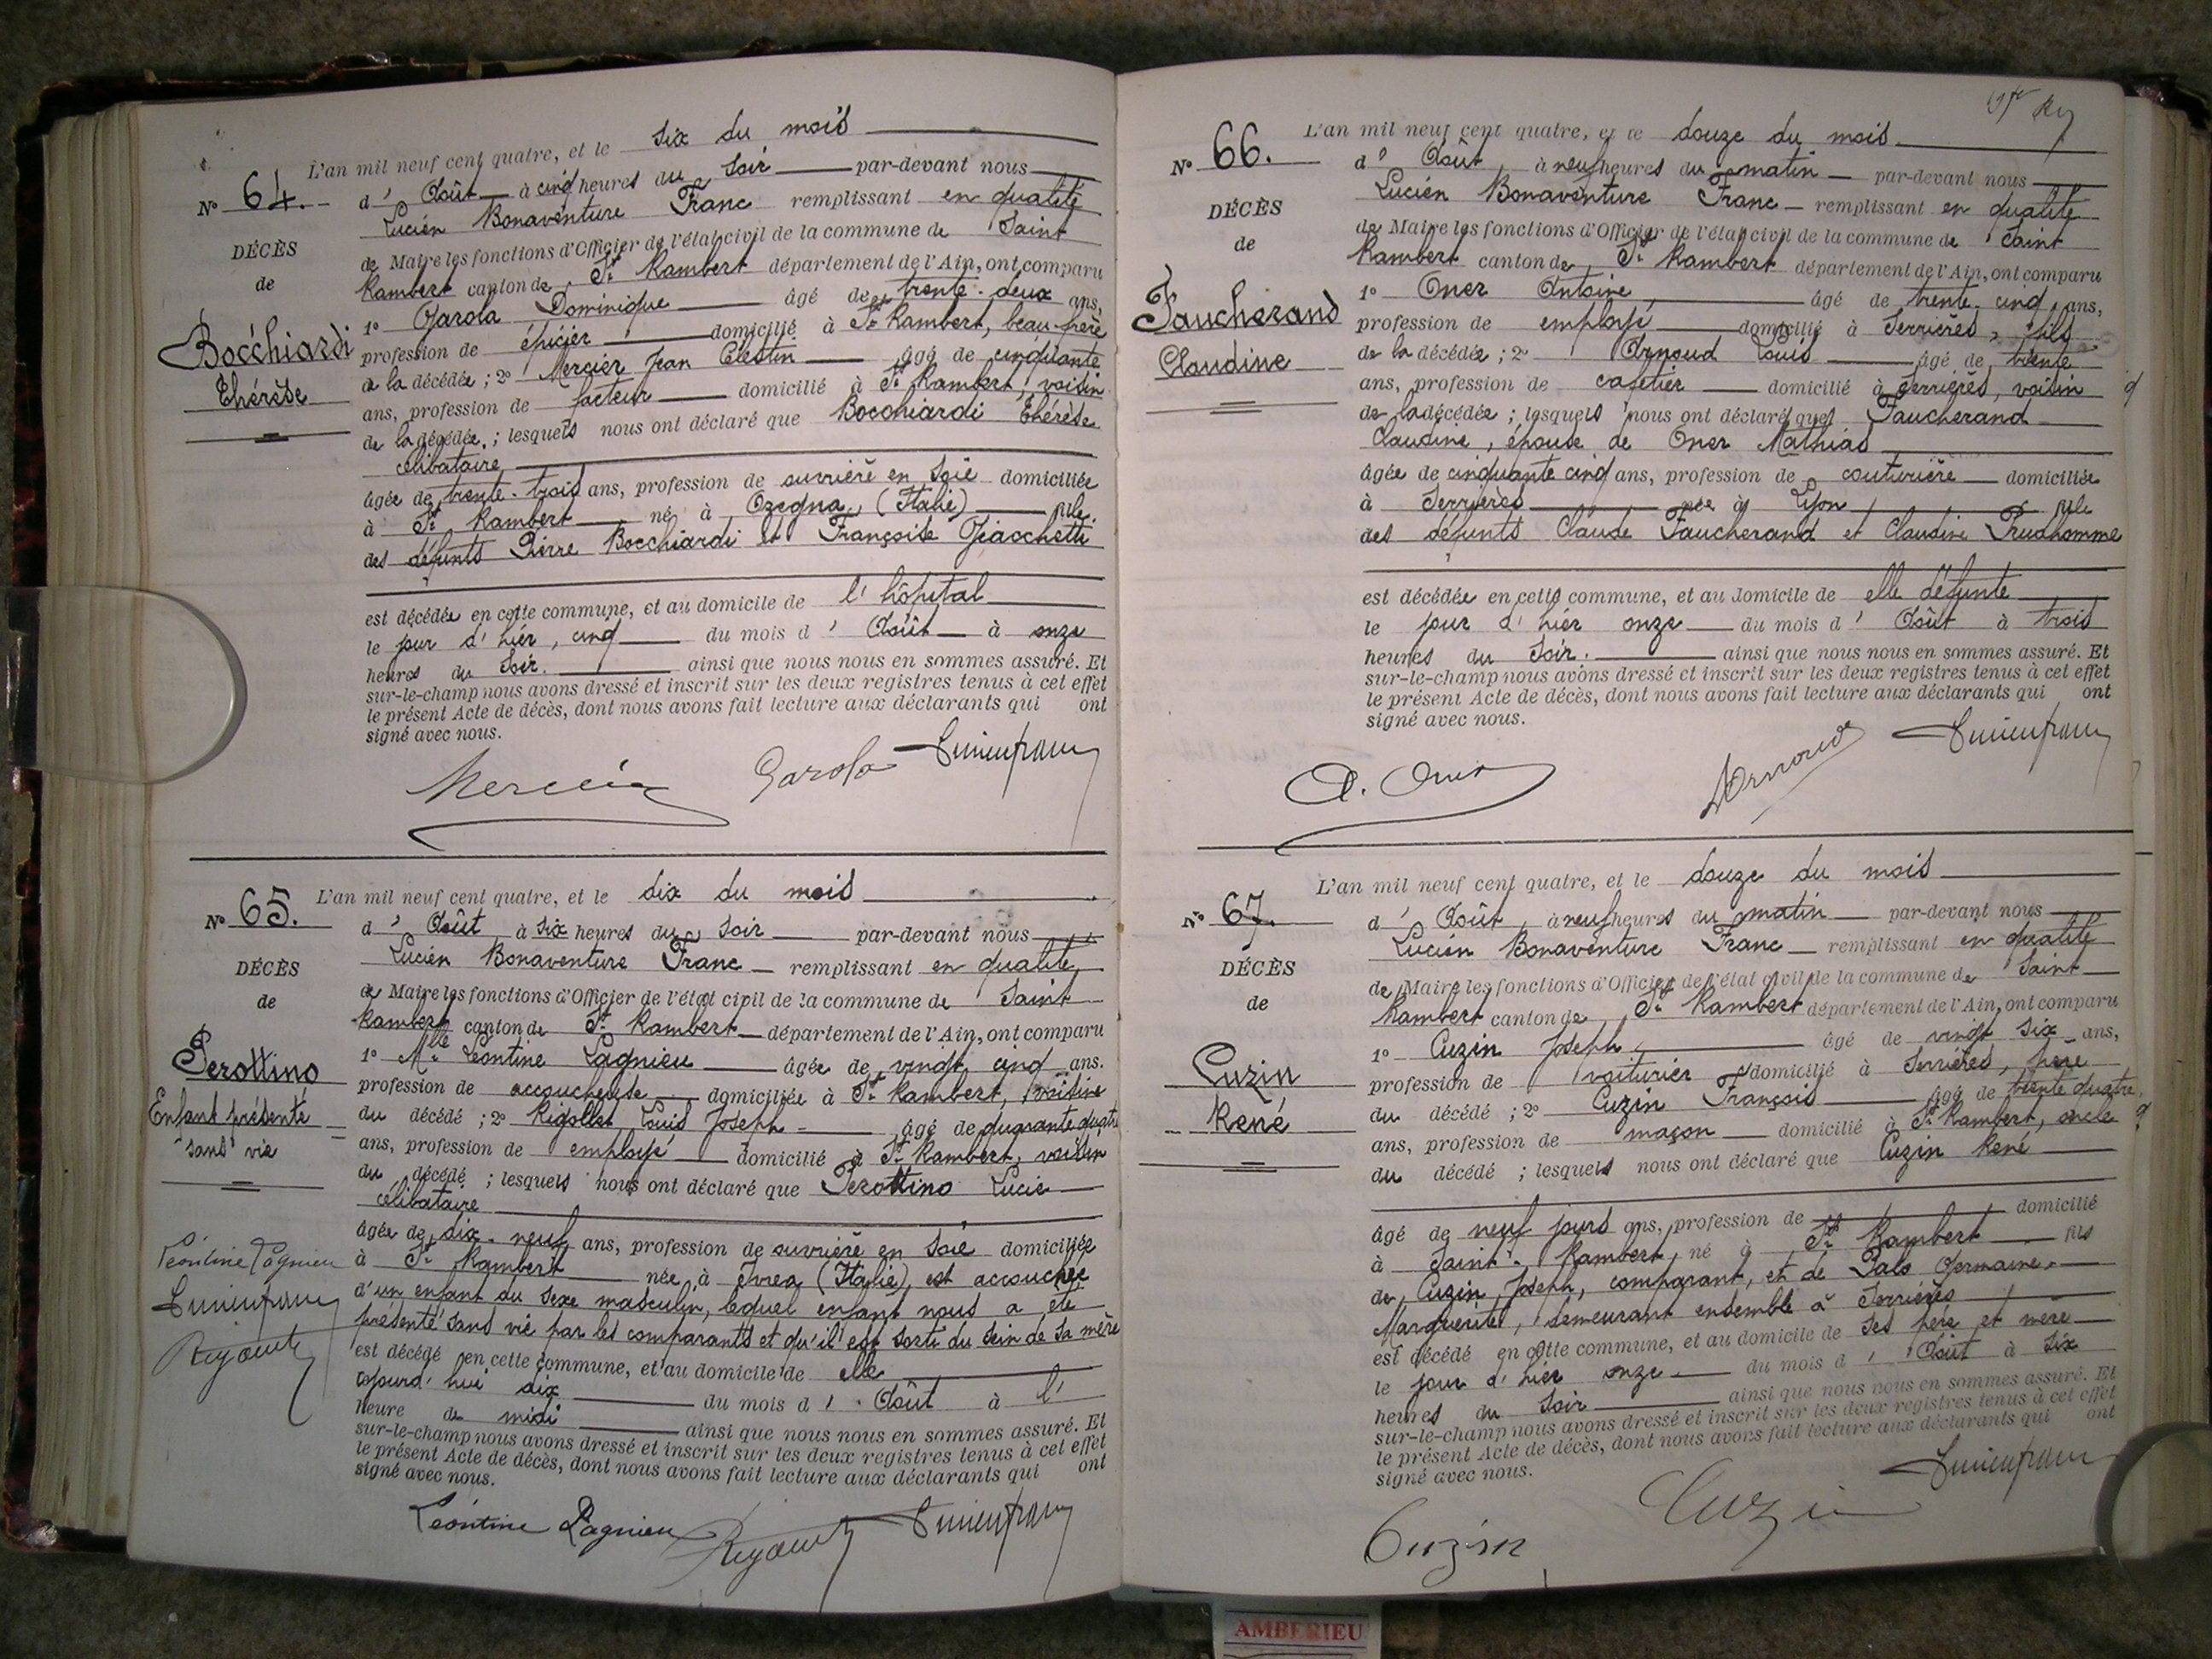 L'an mil neuf cent quatre, et le six du mois
N° 64. d' Août à cinq heures du soir par-devant nous
Lucien Bonaventure Franc remplissant en qualité
de Maire les fonctions d'Officier de l'état civil de la commune de Saint
Rambert canton de St Rambert département de l'Ain, ont comparu
1° Garola Dominique âgé de trente-deux ans,
profession de épicier domicilié à St Rambert, beau-frère
de la décédée ; 2° Mercier Jean Célestin âgé de cinquante
ans, profession de facteur domicilié à St Rambert, voisin
de la décédée ; lesquels nous ont déclaré que Bocchiardi Thérèse
célibataire
âgée de trente-trois ans, profession de ouvrière en soie domiciliée
à St Rambert né à Ozegna (Italie) fille
des défunts Pierre Bocchiardi et Françoise Giacchetti
est décédée en cette commune, et au domicile de l'hôpital
le jour d'hier, cinq du mois d' Août à onze
heures du soir. ainsi que nous nous en sommes assuré. Et
sur-le-champ nous avons dressé et inscrit sur les deux registres tenus à cet effet
le présent Acte de décès, dont nous avons fait lecture aux déclarants qui ont
signé avec nous.
DÉCÈS
de
Bocchiardi
Thérèse
Mercier Garola Lucien Franc
L'an mil neuf cent quatre, et le dix du mois
N° 65. d' Août à six heures du soir par-devant nous
Lucien Bonaventure Franc remplissant en qualité
de Maire les fonctions d'Officier de l'état civil de la commune de Saint
Rambert canton de St Rambert département de l'Ain, ont comparu
1° Mlle Léontine Lagnieu âgée de vingt cinq ans.
profession de accoucheuse domiciliée à St Rambert, voisine
du décédé ; 2° Rigollet Louis Joseph âgé de quarante quatre
ans, profession de employé domicilié à St Rambert, voisin
du décédé ; lesquels nous ont déclaré que Perottino Lucie
célibataire
âgée de dix-neuf ans, profession de ouvrière en soie domiciliée
à St Rambert née à Ivrea (Italie), est accouchée
d'un enfant du sexe masculin, lequel enfant nous a été
présenté sans vie par les comparants et qu'il est sorti du sein de sa mère
est décédé en cette commune, et au domicile de elle
aujourd'hui dix du mois d' Août à l'
heure de midi ainsi que nous nous en sommes assuré. Et
sur-le-champ nous avons dressé et inscrit sur les deux registres tenus à cet effet
le présent Acte de décès, dont nous avons fait lecture aux déclarants qui ont
signé avec nous.
DÉCÈS
de
Perottino
Enfant présenté
sans vie
Léontine Lagnieu
Lucien Franc
Léontine Lagnieu Lucien Franc
L'an mil neuf cent quatre, et le douze du mois
N° 66. d' Août à neuf heures du matin par-devant nous
Lucien Bonaventure Franc remplissant en qualité
de Maire les fonctions d'Officier de l'état civil de la commune de Saint
Rambert canton de St Rambert département de l'Ain, ont comparu
1° Oner Antoine âgé de trente-cinq ans,
profession de employé domicilié à Serrières, fils
de la décédée ; 2° Arnoud Louis âgé de trente
ans, profession de cafetier domicilié à Serrières, voisin
de la décédée ; lesquels nous ont déclaré que Faucherand
Claudine, épouse de Oner Mathias
âgée de cinquante cinq ans, profession de couturière domiciliée
à Serrières née à Lyon fille
des défunts Claude Faucherand et Claudine Prudhomme
est décédée en cette commune, et au domicile de elle défunte
le jour d'hier onze du mois d' Août à trois
heures du soir. ainsi que nous nous en sommes assuré. Et
sur-le-champ nous avons dressé et inscrit sur les deux registres tenus à cet effet
le présent Acte de décès, dont nous avons fait lecture aux déclarants qui ont
signé avec nous.
DÉCÈS
de
Faucherand
Claudine
A. Oner Arnoud Lucien Franc
L'an mil neuf cent quatre, et le douze du mois
N° 67. d' Août à neuf heures du matin par-devant nous
Lucien Bonaventure Franc remplissant en qualité
de Maire les fonctions d'Officier de l'état civil de la commune de Saint
Rambert canton de St Rambert département de l'Ain, ont comparu
1° Cuzin Joseph âgé de vingt six ans,
profession de voiturier domicilié à Serrières, père
du décédé ; 2° Cuzin François âgé de trente quatre
ans, profession de maçon domicilié à St Rambert, oncle
du décédé ; lesquels nous ont déclaré que Cuzin René
âgé de neuf jours ans, profession de domicilié
à Saint-Rambert, né à St Rambert fils
de Cuzin Joseph, comparant, et de Pals Germaine
Marguerite, demeurant ensemble à Serrières
est décédé en cette commune, et au domicile de ses père et mère
le jour d'hier onze du mois d' Août à six
heures du soir ainsi que nous nous en sommes assuré. Et
sur-le-champ nous avons dressé et inscrit sur les deux registres tenus à cet effet
le présent Acte de décès, dont nous avons fait lecture aux déclarants qui ont
signé avec nous.
DÉCÈS
de
Cuzin
René
Cuzin Cuzin Lucien Franc
AMBERIEU